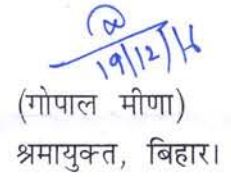 19/12/16
(गोपाल मीणा)
श्रमायुक्त, बिहार।